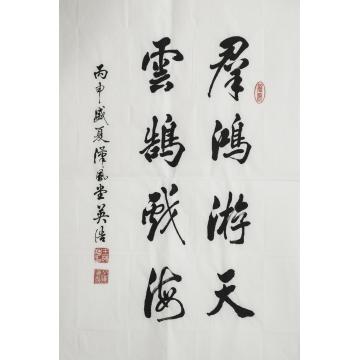 群鴻游天
雲鵠戲海
丙申盛夏漢風堂英浩